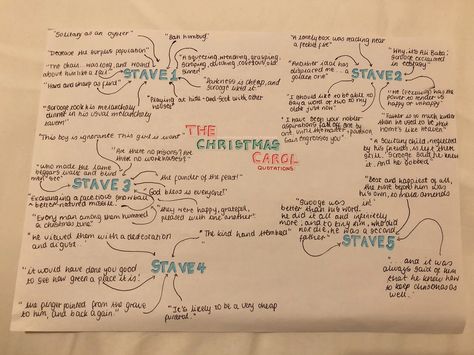 THE
CHRISTMAS
CAROL
QUOTATIONS.
STAVE 1
"Solitary as an oyster"
"Bah humbug"
"Decrease the surplus population"
"The chain... was long, and wound
about him like a tail"
"Hard and sharp as flint"
"Scrooge took his melancholy
dinner in his usual melancholy
tavern"
"A squeezing, wrenching, grasping,
scraping, clutching, covetous old
sinner"
"Darkness is cheap, and
Scrooge liked it"
"Playing at hide-and-seek with other
houses"
STAVE 2
"A lonely boy was reading near
a feeble fire"
"Why, it's Ali Baba!
Scrooge exclaimed
in ecstasy"
"Another idol has
displaced me... a
golden one"
"He (Fezziwig) has the
power to render us
happy or unhappy"
"I should like to be able to
say a word or two to my
clerk just now"
"Father is so much kinder
than he used to be that
home's like heaven"
"I have seen your nobler
aspirations fall off one by
one until the master-passion
Gain engrosses you"
"A solitary child, neglected
by his friends, is left there
still. Scrooge said he knew
it. And he sobbed"
STAVE 3
"This boy is ignorance this girl is want"
"Are there no prisons? Are there
no workhouses?"
"Who made lame
beggars walk and blind
men see"
"the founder of the feast"
"God bless us everyone!"
"Exchanging a facetious snowball
- better-natured missile"
"they were happy, grateful,
pleased with one another"
"Every man among them hummed
a christmas tune"
STAVE 4
"He viewed them with a detestation
and disgust..."
"The kind hand trembled"
"it would have done you good
to see how green a place it is!"
"the finger pointed from the grave
to him, and back again."
"It's likely to be a very cheap
funeral."
STAVE 5
"Best and happiest of all,
the time before him was
his own, to make amends"
"Scrooge was
better than his word.
He did it all and infinitely
more; and to tiny tim, who did
not die, he was a second
father"
"...and it was
always said of him
that he knew how
to keep christmas
well."